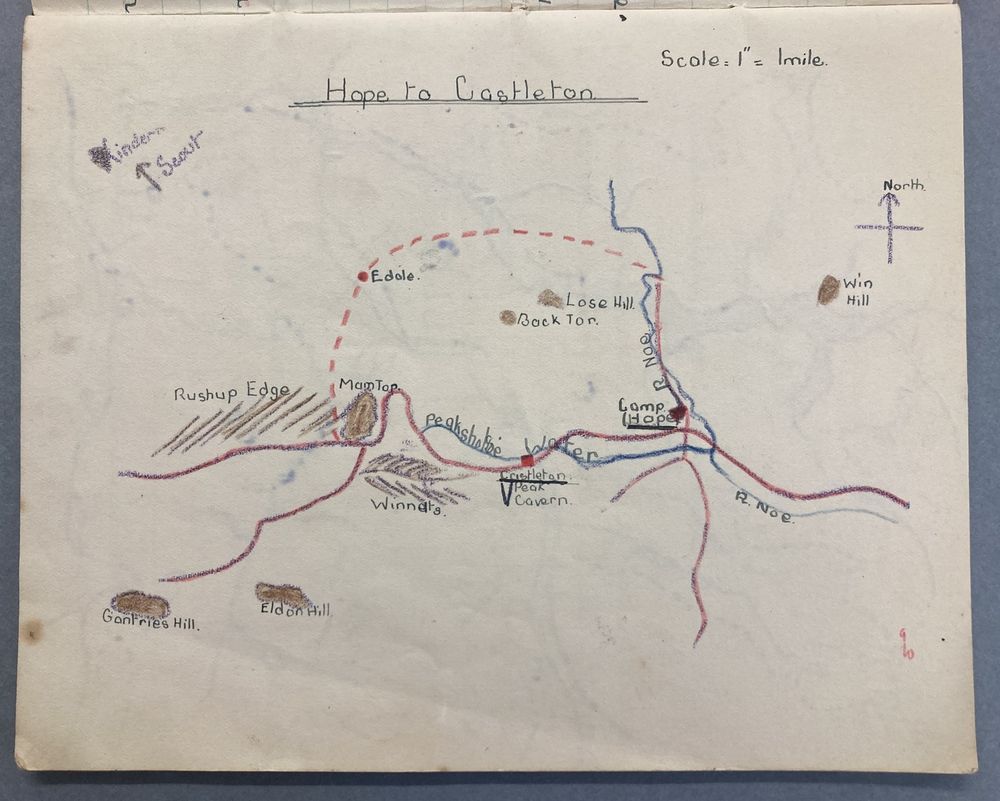 Scale: 1" = 1mile.
Hope to Castleton
Kinder
Scout
North.
Edale.
Win
Hill
Lose Hill.
Back Tor.
R. Noe.
Rushup Edge
Mam Tor
Camp
(Hope)
Peakshole Water
Castleton
Peak
Cavern.
Winnats.
R. Noe.
Eldon Hill.
Gontries Hill.